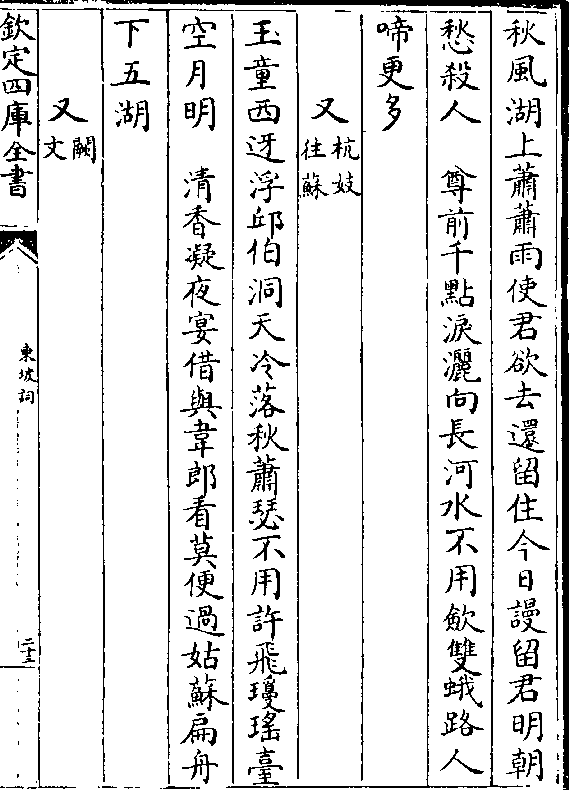 秋風湖上蕭蕭雨使君欲去還留住今日謾留君明朝
愁殺人　尊前千點淚灑向長河水不用歛雙蛾路人
啼更多
又杭妓往蘇
玉童西迓浮邱伯洞天冷落秋蕭瑟不用許飛瓊瑤臺
空月明　清香凝夜宴借與韋郎看莫便過姑蘇扁舟
下五湖
又闕文
欽定四庫全書
東坡詞
二十三